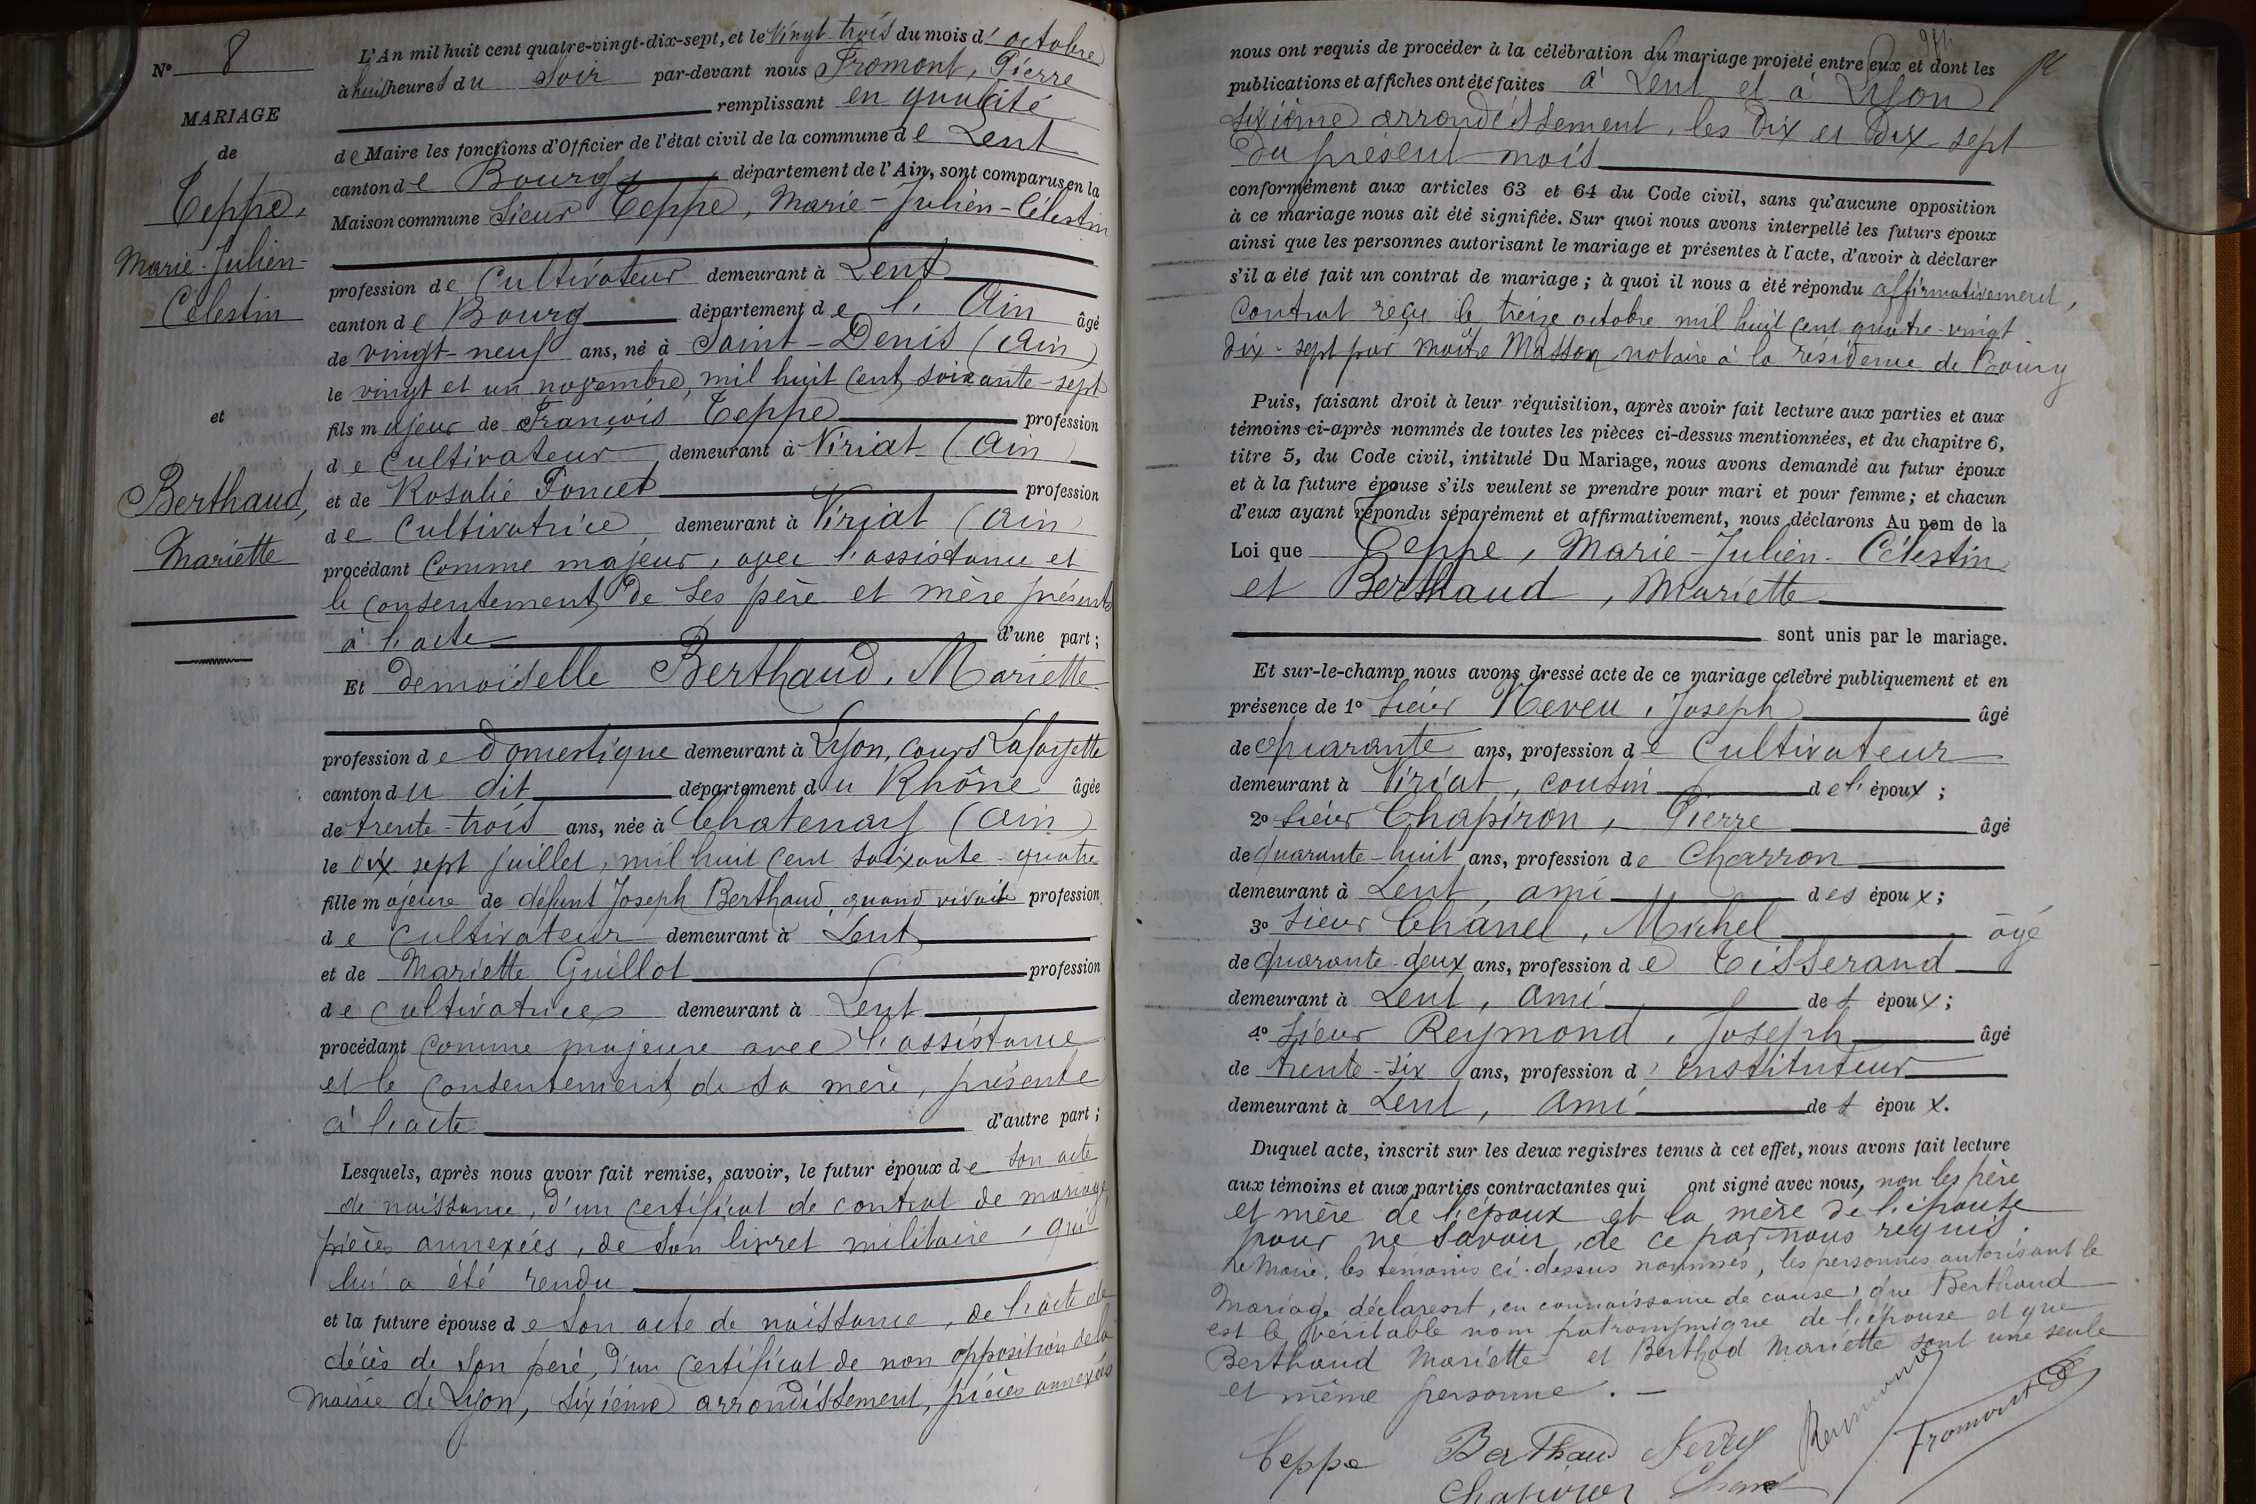 N° 8
MARIAGE
de
Teppe,
Marie-Julien-
Célestin
et
Berthaud,
Mariette
L'An mil huit cent quatre-vingt-dix-sept, et le vingt-trois du mois d'octobre
à huit heures du soir par-devant nous Fromont, Pierre
remplissant en qualité
de Maire les fonctions d'Officier de l'état civil de la commune de Lent
canton de Bourg département de l'Ain, sont comparus en la
Maison commune Sieur Teppe, Marie-Julien-Célestin
profession de Cultivateur demeurant à Lent
canton de Bourg département de l'Ain âgé
de vingt-neuf ans, né à Saint-Denis (Ain)
le vingt et un novembre, mil huit cent soixante-sept
fils majeur de François Teppe profession
de Cultivateur demeurant à Viriat (Ain)
et de Rosalie Poncet profession
de Cultivatrice demeurant à Viriat (Ain)
procédant comme majeur, avec l'assistance et
le consentement de ses père et mère présents
à l'acte d'une part;
Et demoiselle Berthaud, Mariette
profession de domestique demeurant à Lyon, cours Lafayette
canton du dit département du Rhône âgée
de trente-trois ans, née à Chatenay (Ain)
le dix sept juillet, mil huit cent soixante-quatre
fille majeure de défunt Joseph Berthaud, quand vivait profession
de Cultivateur demeurant à Lent
et de Mariette Guillot profession
de cultivatrice demeurant à Lent
procédant comme majeure avec l'assistance
et le consentement de sa mère, présente
à l'acte d'autre part;
Lesquels, après nous avoir fait remise, savoir, le futur époux de son acte
de naissance, d'un certificat de contrat de mariage,
pièces annexées, de son livret militaire, qui
lui a été rendu
et la future épouse de son acte de naissance, de l'acte de
décès de son père, d'un certificat de non opposition de la
mairie de Lyon, sixième arrondissement, pièces annexées
nous ont requis de procéder à la célébration du mariage projeté entre eux et dont les
publications et affiches ont été faites à Lent et à Lyon
sixième arrondissement, les dix et dix-sept
du présent mois
conformément aux articles 63 et 64 du Code civil, sans qu'aucune opposition
à ce mariage nous ait été signifiée. Sur quoi nous avons interpellé les futurs époux
ainsi que les personnes autorisant le mariage et présentes à l'acte, d'avoir à déclarer
s'il a été fait un contrat de mariage; à quoi il nous a été répondu affirmativement,
contrat reçu le treize octobre mil huit cent quatre-vingt
dix-sept par maître Masson notaire à la résidence de Bourg
Puis, faisant droit à leur réquisition, après avoir fait lecture aux parties et aux
témoins ci-après nommés de toutes les pièces ci-dessus mentionnées, et du chapitre 6,
titre 5, du Code civil, intitulé Du Mariage, nous avons demandé au futur époux
et à la future épouse s'ils veulent se prendre pour mari et pour femme; et chacun
d'eux ayant répondu séparément et affirmativement, nous déclarons Au nom de la
Loi que Teppe, Marie-Julien-Célestin
et Berthaud, Mariette
sont unis par le mariage.
Et sur-le-champ nous avons dressé acte de ce mariage célébré publiquement et en
présence de 1° Sieur Neveu, Joseph âgé
de quarante ans, profession de Cultivateur
demeurant à Viriat, cousin de l'époux;
2° Sieur Chapiron, Pierre âgé
de quarante-huit ans, profession de Charron
demeurant à Lent, ami des époux;
3° Sieur Chanel, Michel âgé
de quarante-deux ans, profession de Tisserand
demeurant à Lent, ami des époux;
4° Sieur Reymond, Joseph âgé
de trente-six ans, profession d'instituteur
demeurant à Lent, ami des époux.
Duquel acte, inscrit sur les deux registres tenus à cet effet, nous avons fait lecture
aux témoins et aux parties contractantes qui ont signé avec nous, non les père
et mère de l'époux et la mère de l'épouse
pour ne savoir, de ce par nous requis.
Le Maire, les témoins ci-dessus nommés, les personnes autorisant le
mariage déclarent, en connaissance de cause, que Berthaud
est le véritable nom patronymique de l'épouse et que
Berthaud Mariette et Berthod Mariette sont une seule
et même personne.
Teppe Berthaud Neveu Reymond Fromont
Chapiron Chanel